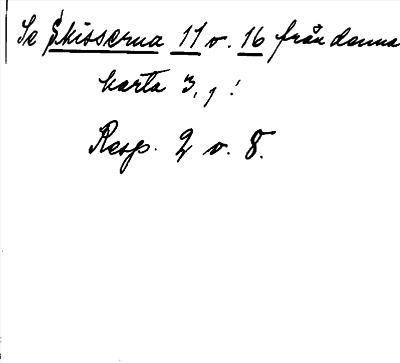 Se Skisserna 11 v. 16 från denna
karta 3, 1!
Resp. 2 v. 8.